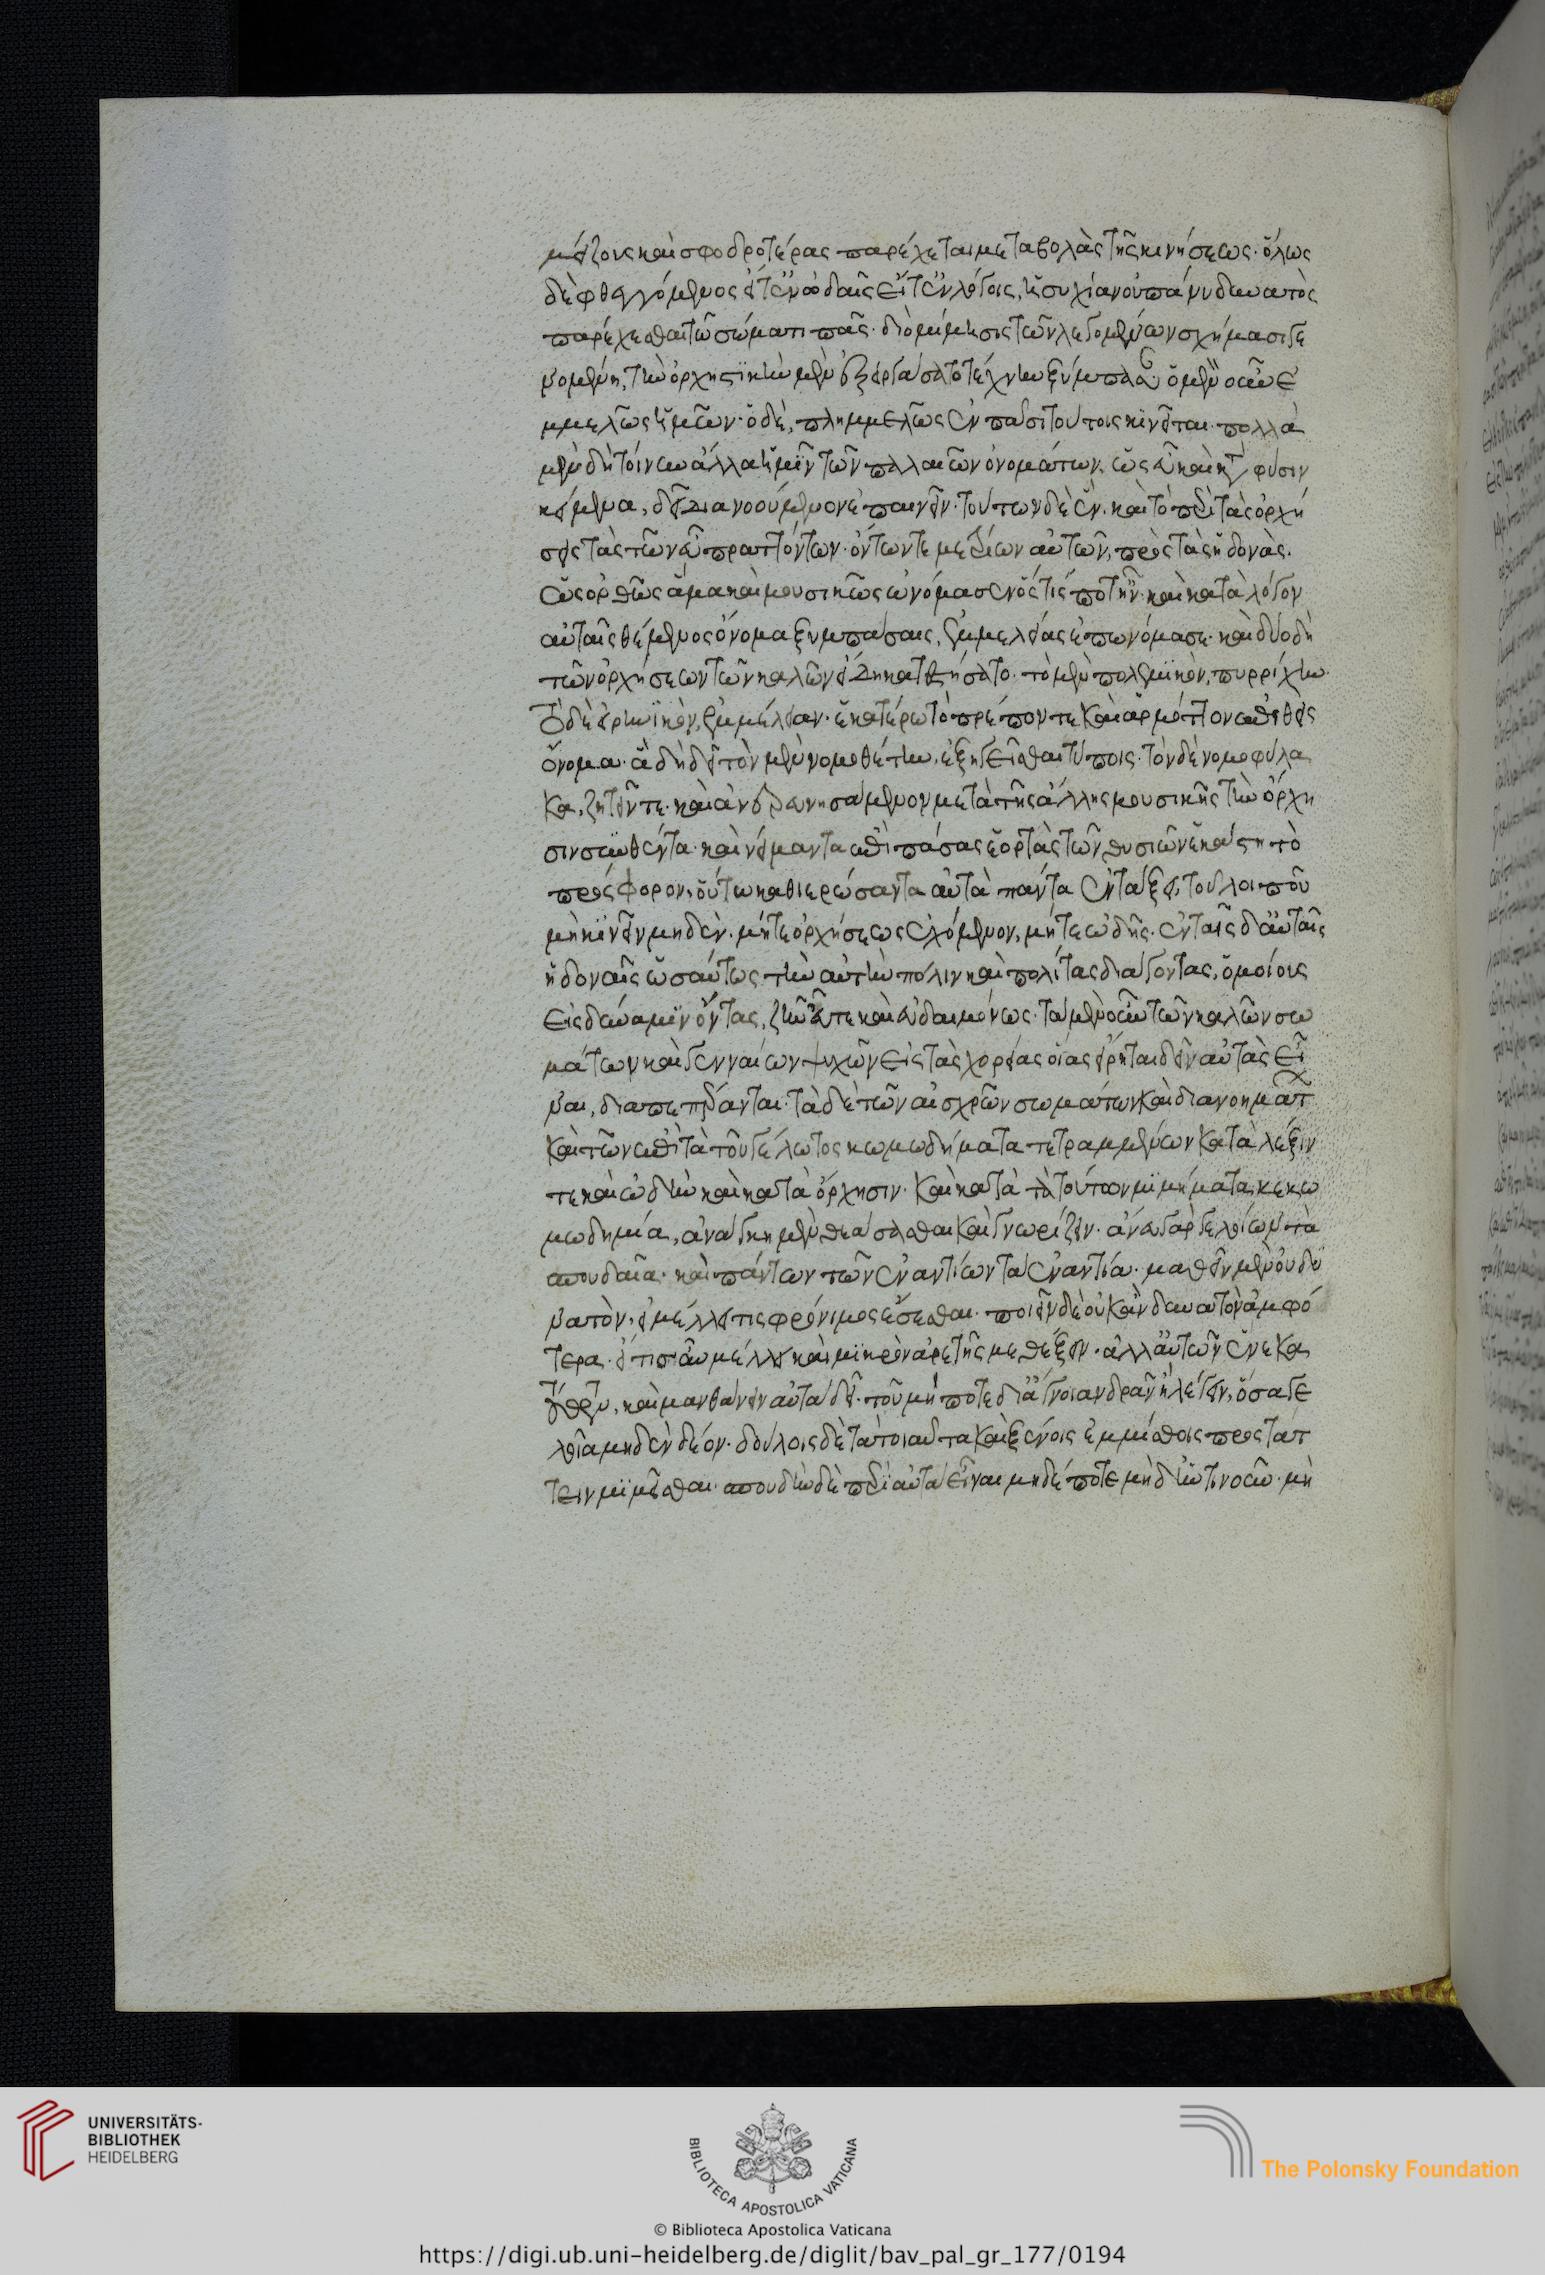 μείζους καὶ σφοδροτέρας παρέχεται μεταβολὰς τῆς κινήσεως· ὅλως
δὲ φθεγγόμενος εἴτ' ἐν ᾠδαῖς εἴτ' ἐν λόγοις, ἡσυχίαν οὐ πάνυ δυνατὸς
παρέχεσθαι τῷ σώματι πᾶς· διὸ μίμησις τῶν λεγομένων σχήμασι γε
νομένη, τὴν ὀρχηστικὴν μὲν ἐξειργάσατο τέχνην ξύμπασαν ὁ μὲν οὖν ἐ
μμελῶς ἡμῶν· ὁ δὲ, πλημμελῶς ἐν πᾶσι τούτοις κινεῖται· πολλὰ
μὲν δὴ τοίνυν ἄλλα ἡμῖν τῶν παλαιῶν ὀνομάτων, ὡς εὖ καὶ κατὰ φύσιν
κείμενα, δεῖ διανοούμενον ἐπαινεῖν· τούτων δὲ ἓν· καὶ τὸ περὶ τὰς ὀρχή
σεις τὰς τῶν εὖ πραττόντων· ὄντων τε μετρίων αὐτῶν, πρὸς τὰς ἡδονὰς.
ὡς ὀρθῶς ἅμα καὶ μουσικῶς ὠνόμασεν ὅστίς ποτ' ἦν· καὶ κατὰ λόγον
αὐταῖς θέμενος ὄνομα ξυμπάσαις, ἐμμελείας ἐπωνόμασε· καὶ δύο δὴ
τῶν ὀρχήσεων τῶν καλῶν εἴδη κατεστήσατο· τὸ μὲν πολεμικὸν, πυρρίχην
τὸ δὲ εἰρηνικὸν, ἐμμέλειαν· ἑκατέρῳ τὸ πρέπον τε καὶ ἁρμόττον ἐπιθεὶς
ὄνομα· ἃ δὴ δεῖ τὸν μὲν νομοθέτην, ἐξηγεῖσθαι τύποις· τὸν δὲ νομοφύλα
κα, ζητεῖν τε· καὶ ἀνερευνησάμενον μετὰ τῆς ἄλλης μουσικῆς τὴν ὄρχη
σιν συνθέντα· καὶ νείμαντα ἐπὶ πάσας ἑορτὰς τῶν θυσιῶν ἑκάστῃ τὸ
πρόσφορον, οὕτω καθιερώσαντα αὐτὰ πάντα ἐν τάξει, τοῦ λοιποῦ
μὴ κινεῖν μηδὲν· μήτε ὀρχήσεως ἐχόμενον, μήτε ᾠδῆς· ἐν ταῖς δ' αὐταῖς
ἡδοναῖς ὡσαύτως τὴν αὐτὴν πόλιν καὶ πολίτας διάγοντας, ὁμοίους
εἰς δύναμιν ὄντας, ζῆν εὖ τε καὶ εὐδαιμόνως· τὰ μὲν οὖν τῶν καλῶν σω
μάτων καὶ γενναίων ψυχῶν εἰς τὰς χορείας οἵας εἴρηται δεῖν αὐτὰς εἶ
ναι, διαπεπέρανται· τὰ δὲ τῶν αἰσχρῶν σωμάτων καὶ διανοημάτων
καὶ τῶν ἐπὶ τὰ τοῦ γέλωτος κωμῳδήματα τετραμμένων κατὰ λέξιν
τε καὶ ᾠδὴν καὶ κατὰ ὄρχησιν· καὶ κατὰ τὰ τούτων μιμήματα κεκω
μῳδημέα, ἀνάγκη μὲν θεάσασθαι καὶ γνωρίζειν· ἄνευ γὰρ γελοίων τὰ
σπουδαῖα· καὶ πάντων τῶν ἐναντίων τὰ ἐναντία· μαθεῖν μὲν οὐ δυ
νατὸν, εἰ μέλλει τις φρόνιμος ἔσεσθαι· ποιεῖν δὲ οὐκ ἂν δυνατὸν ἀμφό
τερα· εἴ τις αὖ μέλλει καὶ μικρὸν ἀρετῆς μεθέξειν· ἀλλ' αὐτῶν ἕνεκα
τούτων, καὶ μανθάνειν αὐτὰ δεῖ· τοῦ μή ποτε δι' ἄγνοιαν δρᾶν ἢ λέγειν, ὅσα γε
λοῖα μηδὲν δέον· δούλοις δὲ τὰ τοιαῦτα καὶ ξένοις ἐμμίσθοις προστάτ
τειν μιμεῖσθαι· σπουδὴν δὲ περὶ αὐτὰ εἶναι μηδέποτε μὴδ' ἡντινοῦν· μὴ
UNIVERSITÄTS-
BIBLIOTHEK
HEIDELBERG
BIBLIOTECA APOSTOLICA VATICANA
The Polonsky Foundation
© Biblioteca Apostolica Vaticana
https://digi.ub.uni-heidelberg.de/diglit/bav_pal_gr_177/0194